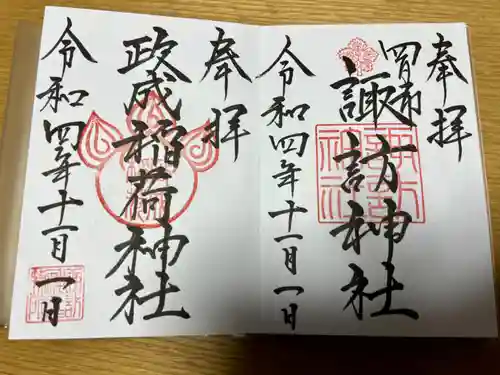 奉拝
四日市
諏訪神社
令和四年十一月一日
奉拝
政成稲荷神社
令和四年十一月一日